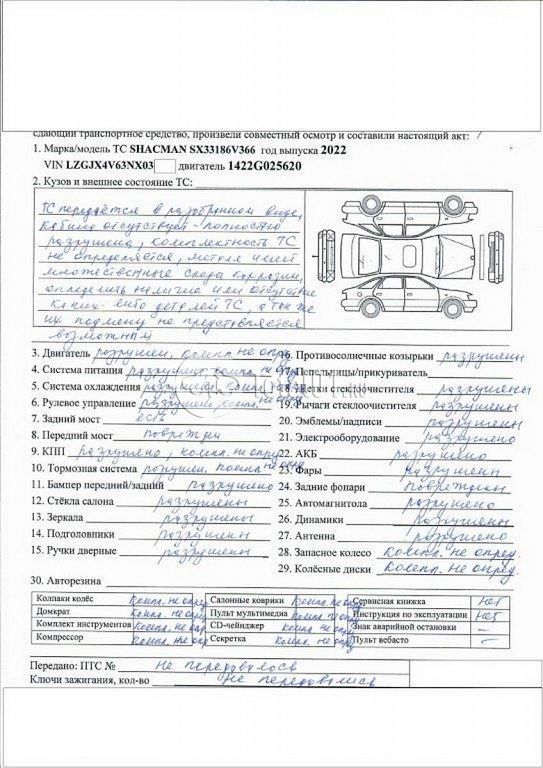 сдающий транспортное средство, произвели совместный осмотр и составили настоящий акт:
1. Марка/модель ТС SHACMAN SX33186V366 год выпуска 2022
VIN LZGJX4V63NX03 двигатель 1422G025620
2. Кузов и внешнее состояние ТС:
ТС передаётся в разобранном виде,
кабина отсутствует - полностью
разрушена, комплектность ТС
не определяется, метала имеет
множественные следы коррозии,
определить наличие или отсутствие
каких-либо деталей ТС, а так же
их подмену не представляется
возможным
3. Двигатель разрушен, компл. не опр 16. Противосолнечные козырьки разрушены
4. Система питания разрушена, компл. не опр 17. Пепельницы/прикуриватель
5. Система охлаждения разрушена компл. не опр 18. Щетки стеклоочистителя разрушены
6. Рулевое управление разрушено компл. не опр 19. Рычаги стеклоочистителя разрушены
7. Задний мост есть 20. Эмблемы/надписи разрушены
8. Передний мост поврежден 21. Электрооборудование разрушено
9. КПП разрушено, компл. не опр 22. АКБ разрушено
10. Тормозная система разрушен, компл. не опр 23. Фары разрушены
11. Бампер передний/задний разрушено 24. Задние фонари повреждены
12. Стёкла салона разрушены 25. Автомагнитола разрушено
13. Зеркала разрушены 26. Динамики разрушены
14. Подголовники разрушены 27. Антенна разрушено
15. Ручки дверные разрушены 28. Запасное колесо компл. не опред.
29. Колёсные диски компл. не опред.
30. Авторезина
Колпаки колёс компл. не опр Салонные коврики компл. не опр Сервисная книжка нет
Домкрат компл. не опр Пульт мультимедиа компл. не опр Инструкция по эксплуатации нет
Комплект инструментов компл. не опр CD-чейнджер компл. не опр Знак аварийной остановки –
Компрессор компл. не опр Секретка компл. не опр Пульт вебасто –
Передано: ПТС № не передавалось
Ключи зажигания, кол-во не передавались